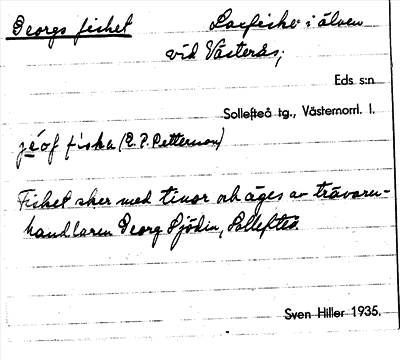 Georgs fisket Laxfiske i älven
vid Västerås;
Eds s:n
Sollefteå tg., Västernorrl. l.
fiska (E. P. Petterson)
Fisket sker med tinor och äges av trävaru-
handlaren Georg Sjödin, Sollefteå.
Sven Hiller 1935.